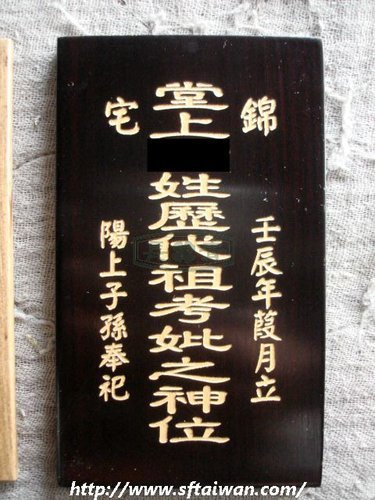 錦
宅
堂上
姓歷代祖考妣之神位
壬辰年葭月立
陽上子孫奉祀
http://www.sftaiwan.com/